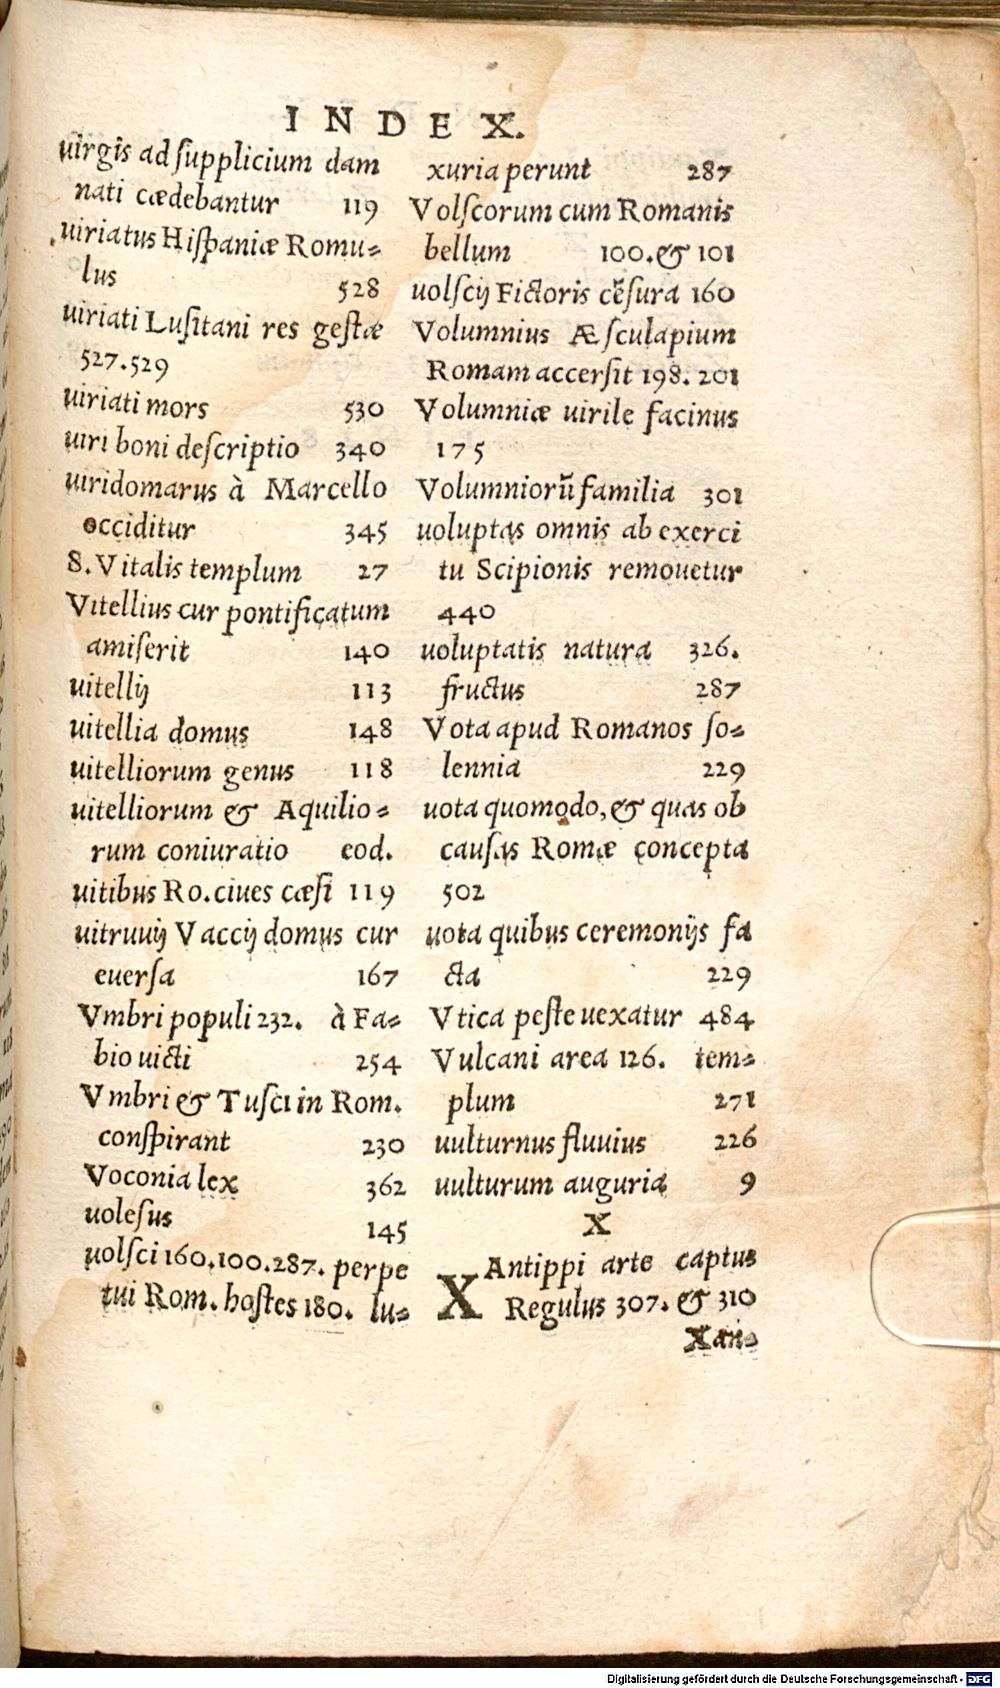 INDEX.
uirgis ad ſupplicium dam
nati cædebantur 119
uiriatus Hiſpaniæ Romu-
lus 528
uiriati Luſitani res geſtæ
527.529
uiriati mors 530
uiri boni deſcriptio 340
uiridomarus à Marcello
occiditur 345
S. Vitalis templum 27
Vitellius cur pontificatum
amiſerit 140
uitellij 113
uitellia domus 148
uitelliorum genus 118
uitelliorum & Aquilio-
rum coniuratio eod.
uitibus Ro. ciues cæſi 119
uitruuij Vaccij domus cur
euerſa 167
Vmbri populi 232. à Fa-
bio uicti 254
Vmbri & Tuſci in Rom.
conſpirant 230
Voconia lex 362
uoleſus 145
uolſci 160.100.287. perpe
tui Rom. hoſtes 180. lu-
xuria perunt 287
Volſcorum cum Romanis
bellum 100. & 101
uolſcij Fictoris cēſura 160
Volumnius Æſculapium
Romam accerſit 198. 201
Volumniæ uirile facinus
175
Volumniorũ familia 301
uoluptas omnis ab exerci
tu Scipionis remouetur
440
uoluptatis natura 326.
fructus 287
Vota apud Romanos ſo-
lennia 229
uota quomodo, & quas ob
cauſas Romæ concepta
502
uota quibus ceremonijs fa
cta 229
Vtica peſte uexatur 484
Vulcani area 126. tem-
plum 271
uulturnus fluuius 226
uulturum auguria 9
X
XAntippi arte captus
Regulus 307. & 310
Xan-
Digitalisierung gefördert durch die Deutsche Forschungsgemeinschaft - DFG